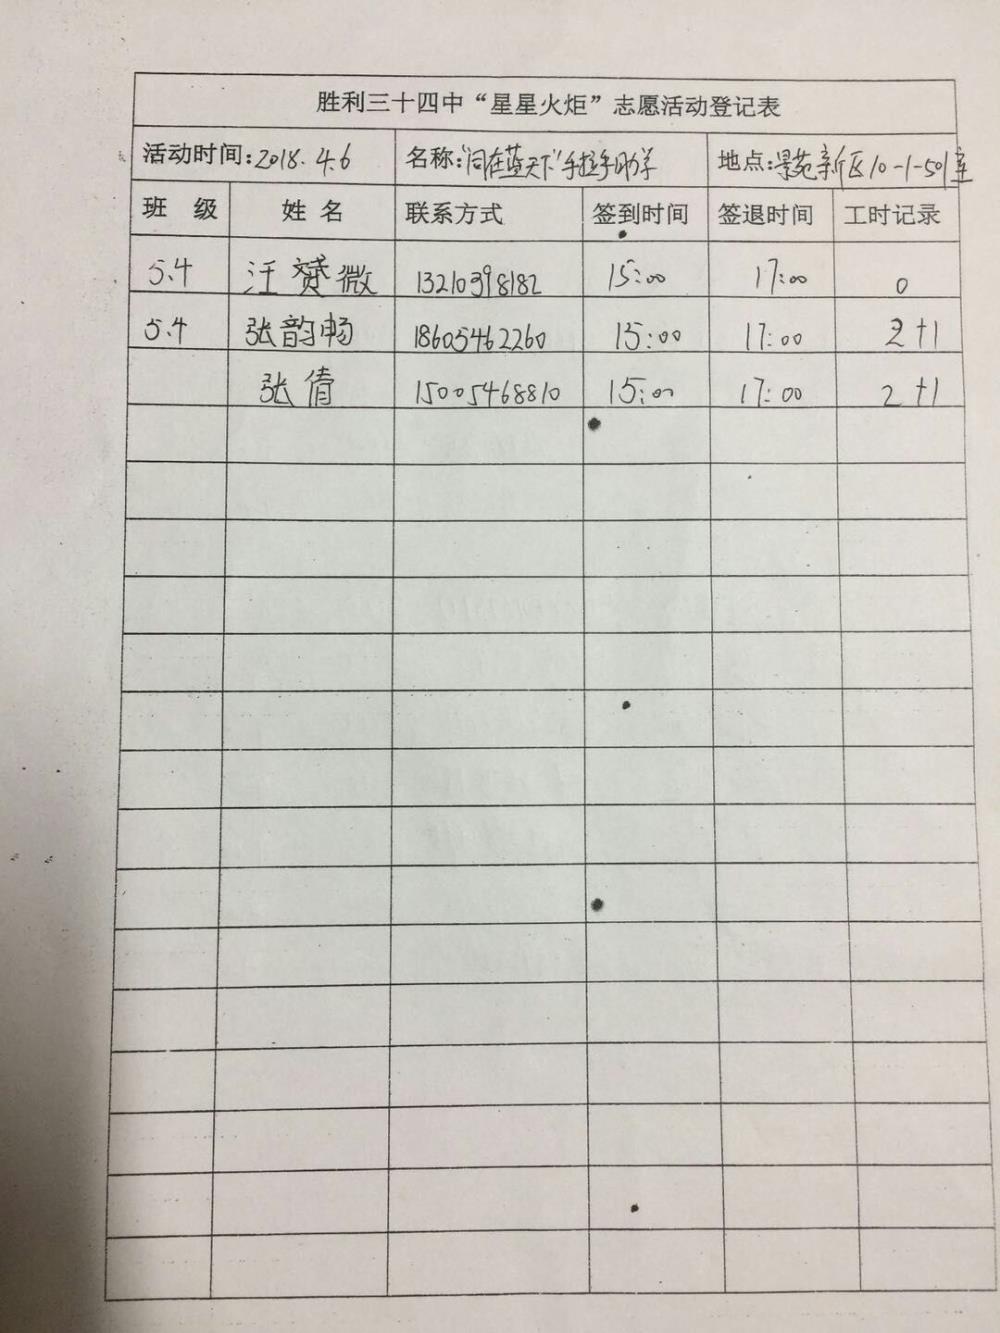 胜利三十四中“星星火炬”志愿活动登记表
活动时间:2018.4.6 名称:“同在蓝天下”手拉手助学 地点:景苑新区10-1-501室
班 级 姓 名 联系方式 签到时间 签退时间 工时记录
5.4 汪赟微 13210398182 15:00 17:00 0
5.4 张韵畅 18605462260 15:00 17:00 2+1
张倩 15005468810 15:00 17:00 2+1